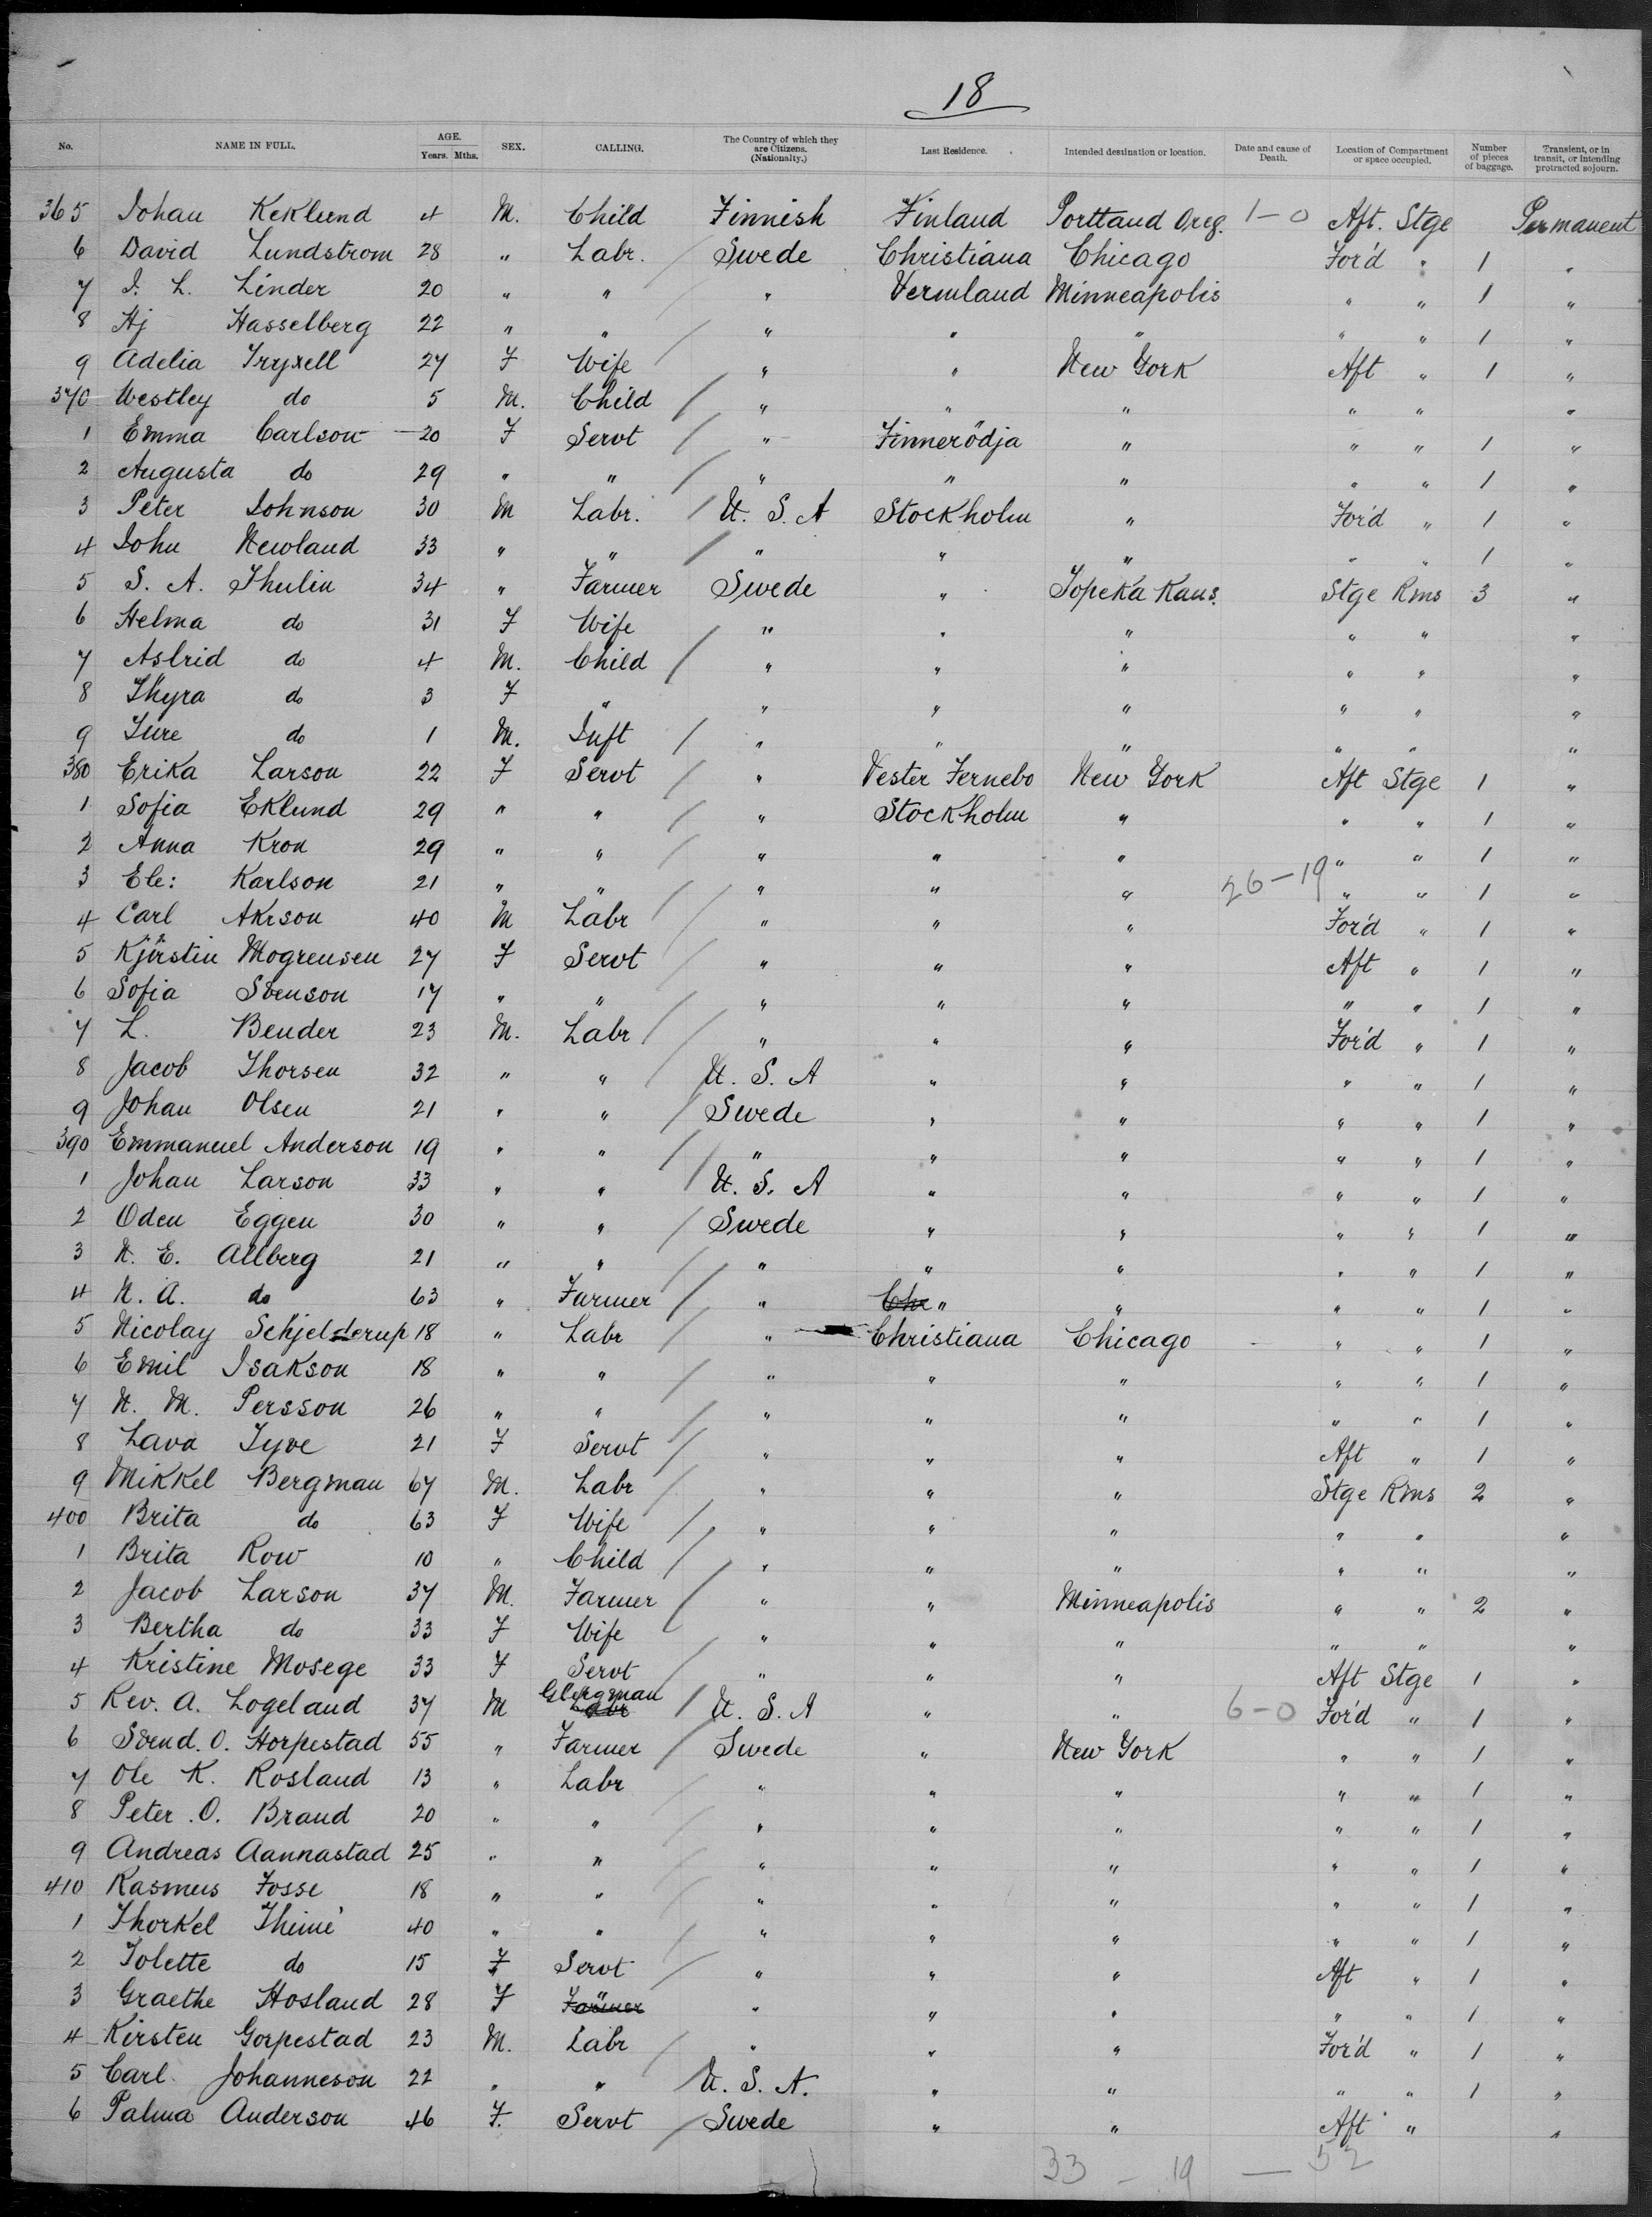 18
No. NAME IN FULL. AGE. Years. Mths. SEX. CALLING. The Country of which they are Citizens. (Nationalty.) Last Residence. Intended destination or location. Date and cause of Death. Location of Compartment or space occupied. Number of pieces of baggage. Transient, or in transit, or intending protracted sojourn.
365 Johan Keklund 4 M. Child Finnish Finland Porttand Oreg. 1-0 Aft. Stge Permanent
6 David Lundstrom 28 " Labr. Swede Christiana Chicago For'd " 1 "
7 J. L. Linder 20 " " " Vermland Minneapolis " " 1 "
8 Hj Hasselberg 22 " " " " " " " 1 "
9 Adelia Fryxell 27 F Wife " " New York Aft " 1 "
370 Westley do 5 M. Child " " " " " "
1 Emma Carlson 20 F Servt " Finnerödja " " " 1 "
2 Augusta do 29 " " " " " " " 1 "
3 Peter Johnson 30 M Labr. U. S. A Stockholm " For'd " 1 "
4 John Newland 33 " " " " " " " 1 "
5 S. A. Thulin 34 " Farmer Swede " Topeka Kans. Stge Rms 3 "
6 Helma do 31 F Wife " " " " " "
7 Astrid do 4 M. Child " " " " " "
8 Thyra do 3 F " " " " " " "
9 Ture do 1 M. Inft " " " " " "
380 Erika Larson 22 F Servt " Vester Fernebo New York Aft Stge 1 "
1 Sofia Eklund 29 " " " Stockholm " " " 1 "
2 Anna Kron 29 " " " " " " " 1 "
3 Ele: Karlson 21 " " " " " 26-19 " " 1 "
4 Carl Akrson 40 M Labr " " " For'd " 1 "
5 Kjerstin Mogrensen 27 F Servt " " " Aft " 1 "
6 Sofia Svenson 17 " " " " " " " 1 "
7 L. Bender 23 M. Labr " " " For'd " 1 "
8 Jacob Thorsen 32 " " U. S. A " " " " 1 "
9 Johan Olsen 21 " " Swede " " " " 1 "
390 Emmanuel Anderson 19 " " " " " " " 1 "
1 Johan Larson 33 " " U. S. A " " " " 1 "
2 Oden Eggen 30 " " Swede " " " " 1 "
3 N. E. Allberg 21 " " " " " " " 1 "
4 N. A. do 63 " Farmer " Chr " " " " 1 "
5 Nicolay Schjelderup 18 " Labr " Christiana Chicago " " 1 "
6 Emil Isakson 18 " " " " " " " 1 "
7 N. M. Persson 26 " " " " " " " 1 "
8 Lava Tyve 21 F Servt " " " Aft " 1 "
9 Mikkel Bergman 67 M. Labr " " " Stge Rms 2 "
400 Brita do 63 F Wife " " " " " "
1 Brita Row 10 " Child " " " " " "
2 Jacob Larson 37 M. Farmer " " Minneapolis " " 2 "
3 Bertha do 33 F Wife " " " " " "
4 Kristine Mosege 33 F Servt " " " Aft Stge 1 "
5 Rev. A. Logeland 37 M Clergman Labr U. S. A " " 6-0 For'd " 1 "
6 Svend. O. Horpestad 55 " Farmer Swede " New York " " 1 "
7 Ole K. Rosland 13 " Labr " " " " " 1 "
8 Peter. O. Braud 20 " " " " " " " 1 "
9 Andreas Aannastad 25 " " " " " " " 1 "
410 Rasmus Fosse 18 " " " " " " " 1 "
1 Thorkel Thimé 40 " " " " " " " 1 "
2 Tolette do 15 F Servt " " " Aft " 1 "
3 Graethe Hosland 28 F Farmer " " " " " " 1 "
4 Kirsten Gorpestad 23 M. Labr " " " For'd " 1 "
5 Carl Johanneson 22 " " U. S. A. " " " " 1 "
6 Palma Anderson 46 F. Servt Swede " " Aft " "
33 - 19 - 52